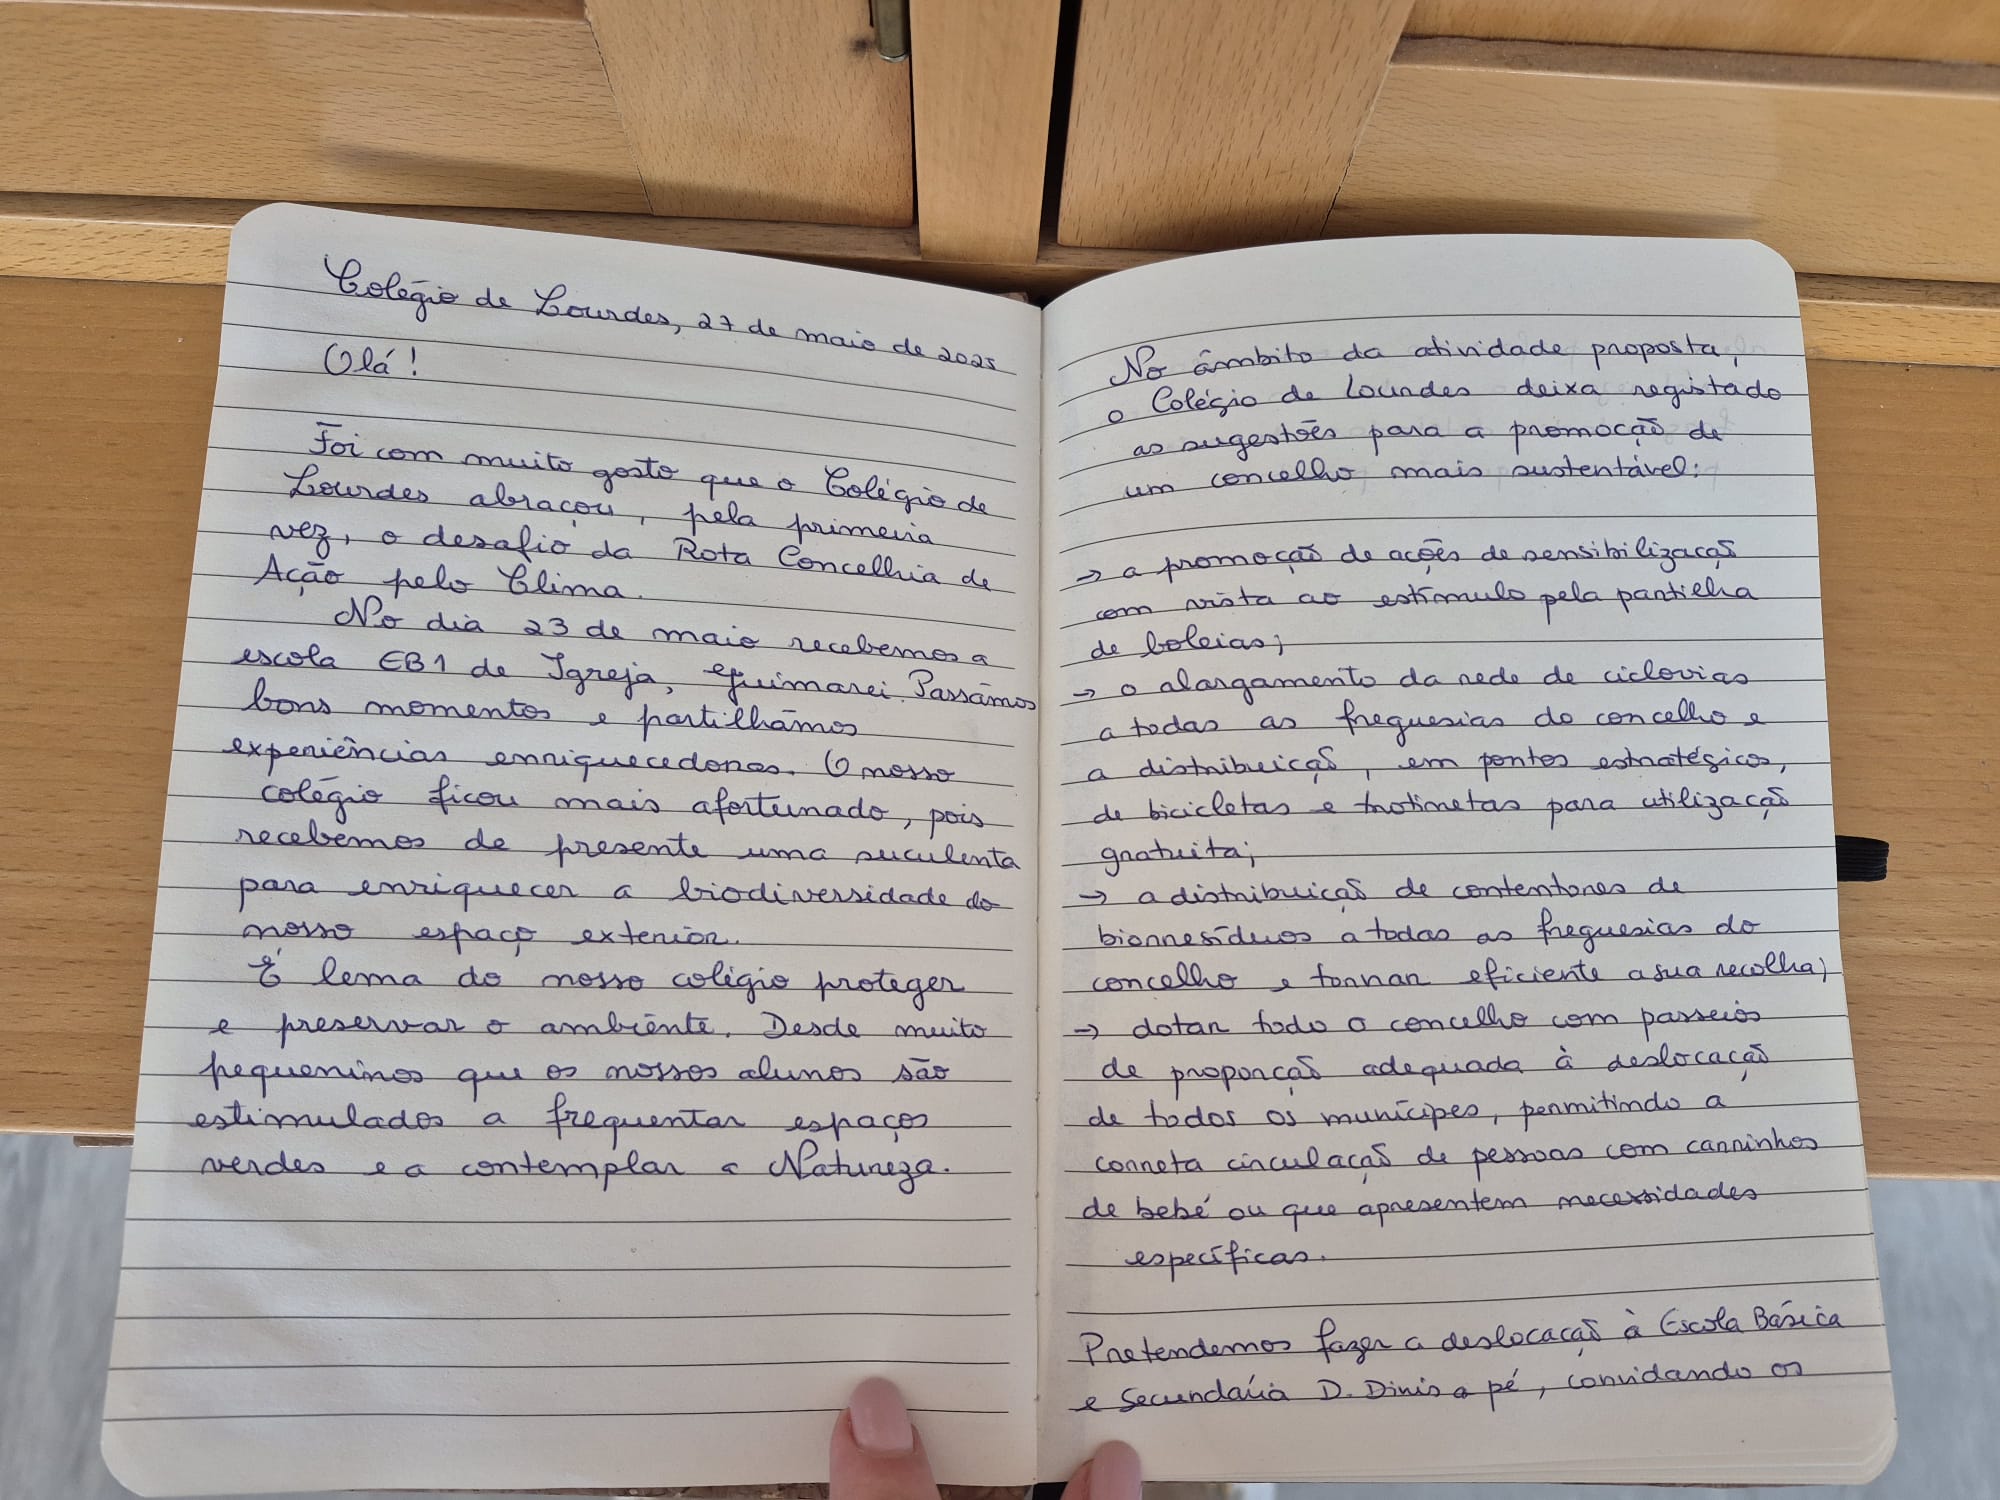 Colégio de Lourdes, 27 de maio de 2025
Olá!
Foi com muito gosto que o Colégio de
Lourdes abraçou, pela primeira
vez, o desafio da Rota Concelhia de
Ação pelo Clima.
No dia 23 de maio recebemos a
escola EB1 de Igreja, Guimarei. Passámos
bons momentos e partilhámos
experiências enriquecedoras. O nosso
colégio ficou mais afortunado, pois
recebemos de presente uma suculenta
para enriquecer a biodiversidade do
nosso espaço exterior.
É lema do nosso colégio proteger
e preservar o ambiente. Desde muito
pequeninos que os nossos alunos são
estimulados a frequentar espaços
verdes e a contemplar a Natureza.
No âmbito da atividade proposta,
o Colégio de Lourdes deixa registado
as sugestões para a promoção de
um concelho mais sustentável:
→ a promoção de ações de sensibilização
com vista ao estímulo pela partilha
de boleias;
→ o alargamento da rede de ciclovias
a todas as freguesias do concelho e
a distribuição, em pontos estratégicos,
de bicicletas e trotinetas para utilização
gratuita;
→ a distribuição de contentores de
biorresíduos a todas as freguesias do
concelho e tornar eficiente a sua recolha;
→ dotar todo o concelho com passeios
de proporção adequada à deslocação
de todos os munícipes, permitindo a
correta circulação de pessoas com carrinhos
de bebé ou que apresentem necessidades
específicas.
Pretendemos fazer a deslocação à Escola Básica
e Secundária D. Dinis a pé, convidando os